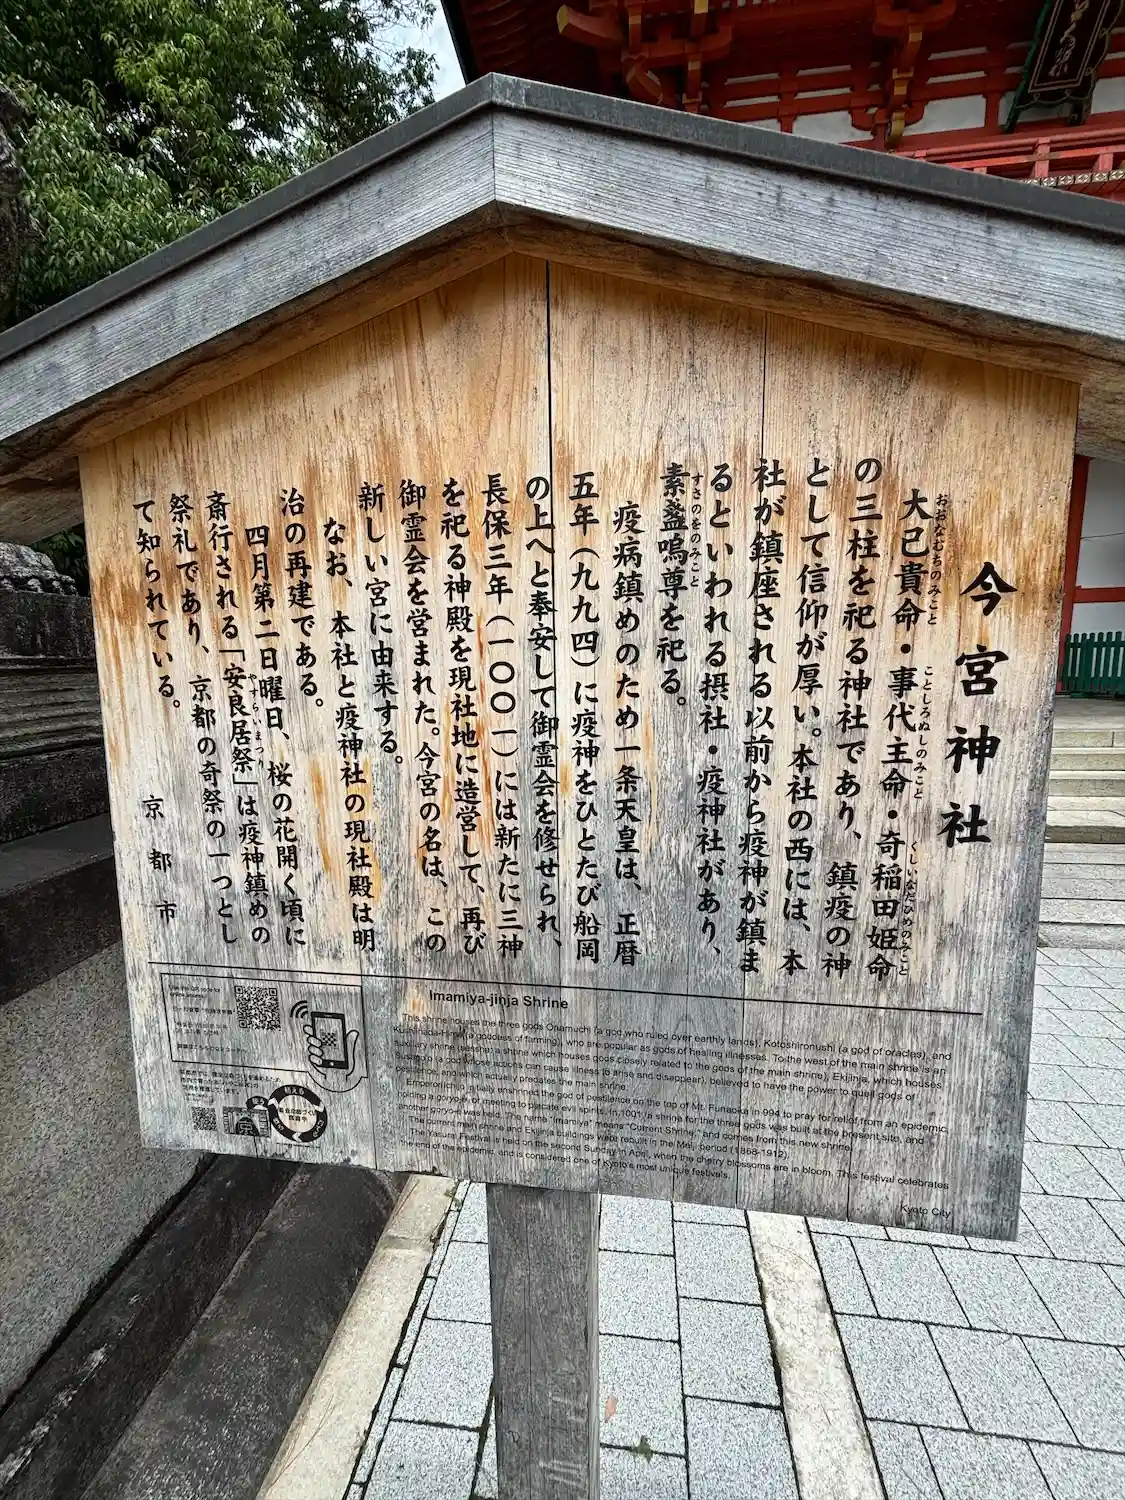 今宮神社
大己貴命・事代主命・奇稲田姫命
おおなむちのみこと
ことしろぬしのみこと
くしいなだひめのみこと
の三柱を祀る神社であり、鎮疫の神
として信仰が厚い。本社の西には、本
社が鎮座される以前から疫神が鎮ま
るといわれる摂社・疫神社があり、
素盞嗚尊を祀る。
すさのをのみこと
疫病鎮めのため一条天皇は、正暦
五年（九九四）に疫神をひとたび船岡
の上へと奉安して御霊会を修せられ、
長保三年（一〇〇一）には新たに三神
を祀る神殿を現社地に造営して、再び
御霊会を営まれた。今宮の名は、この
新しい宮に由来する。
なお、本社と疫神社の現社殿は明
治の再建である。
四月第二日曜日、桜の花開く頃に
斎行される「安良居祭」は疫神鎮めの
やすらいまつり
祭礼であり、京都の奇祭の一つとし
て知られている。
京都市
Imamiya-jinja Shrine
This shrine houses the three gods Onamuchi (a god who ruled over earthly lands), Kotoshironushi (a god of oracles), and
Kushinada-Hime (a goddess of farming), who are popular as gods of healing illnesses. To the west of the main shrine is an
auxiliary shrine (sessha: a shrine which houses gods closely related to the gods of the main shrine), Ekijinja, which houses
Susano'o (a god whose actions can cause illness to arise and disappear), believed to have the power to quell gods of
pestilence, and which actually predates the main shrine.
Emperor Ichijo initially enshrined the god of pestilence on the top of Mt. Funaoka in 994 to pray for relief from an epidemic,
holding a goryo-e, or meeting to placate evil spirits. In 1001, a shrine for the three gods was built at the present site, and
another goryo-e was held. The name "Imamiya" means "Current Shrine," and comes from this new shrine.
The current main shrine and Ekijinja buildings were rebuilt in the Meiji period (1868-1912).
The Yasurai Festival is held on the second Sunday in April, when the cherry blossoms are in bloom. This festival celebrates
the end of the epidemic, and is considered one of Kyoto's most unique festivals.
Kyoto City